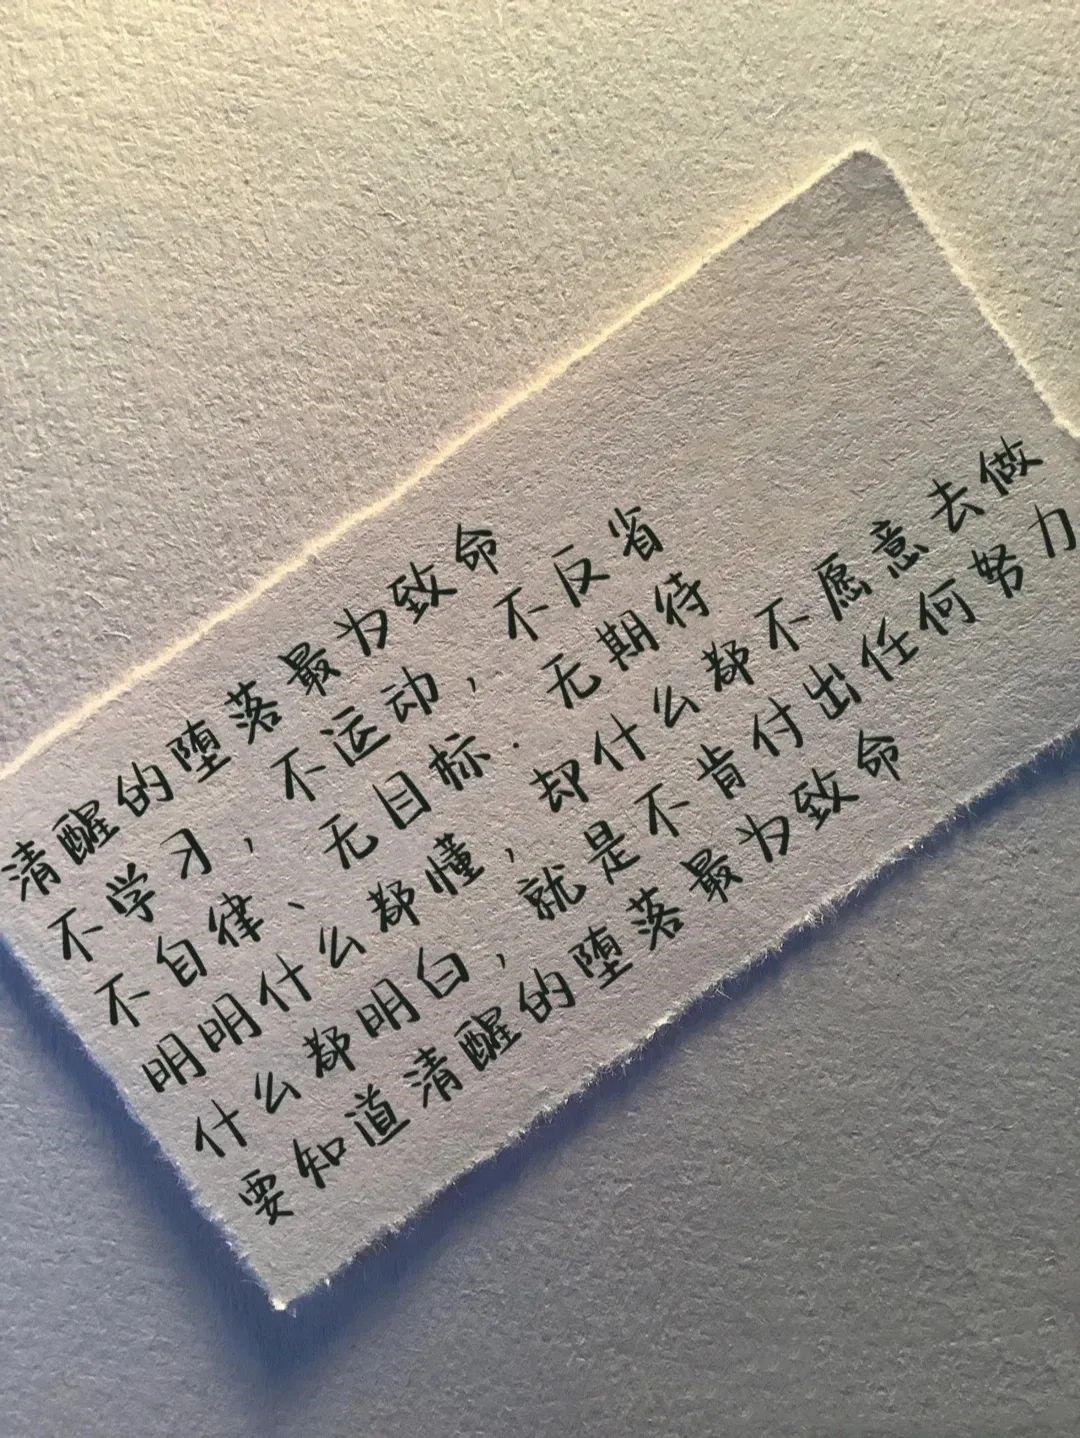 清醒的堕落最为致命
不学习，不运动，不反省
不自律、无目标.无期待
明明什么都懂，却什么都不愿意去做
什么都明白，就是不肯付出任何努力
要知道清醒的堕落最为致命